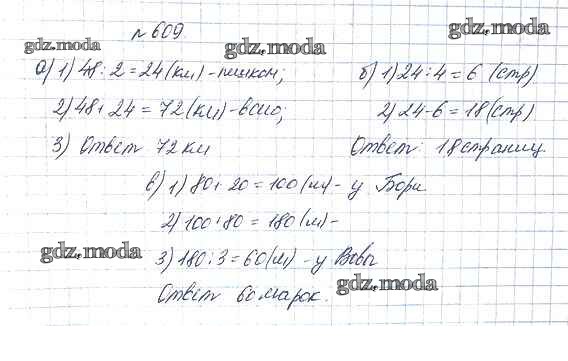 № 609.
gdz.moda
gdz.moda
gdz.moda
а) 1) 48 : 2 = 24 (км) - пешком;
2) 48 + 24 = 72 (км) - всего;
3) Ответ 72 км
б) 1) 24 : 4 = 6 (стр)
2) 24 - 6 = 18 (стр)
Ответ: 18 страниц.
в) 1) 80 + 20 = 100 (м) - у Бори
2) 100 + 80 = 180 (м) -
3) 180 : 3 = 60 (м) - у Вовы
Ответ 60 марок.
gdz.moda
gdz.moda